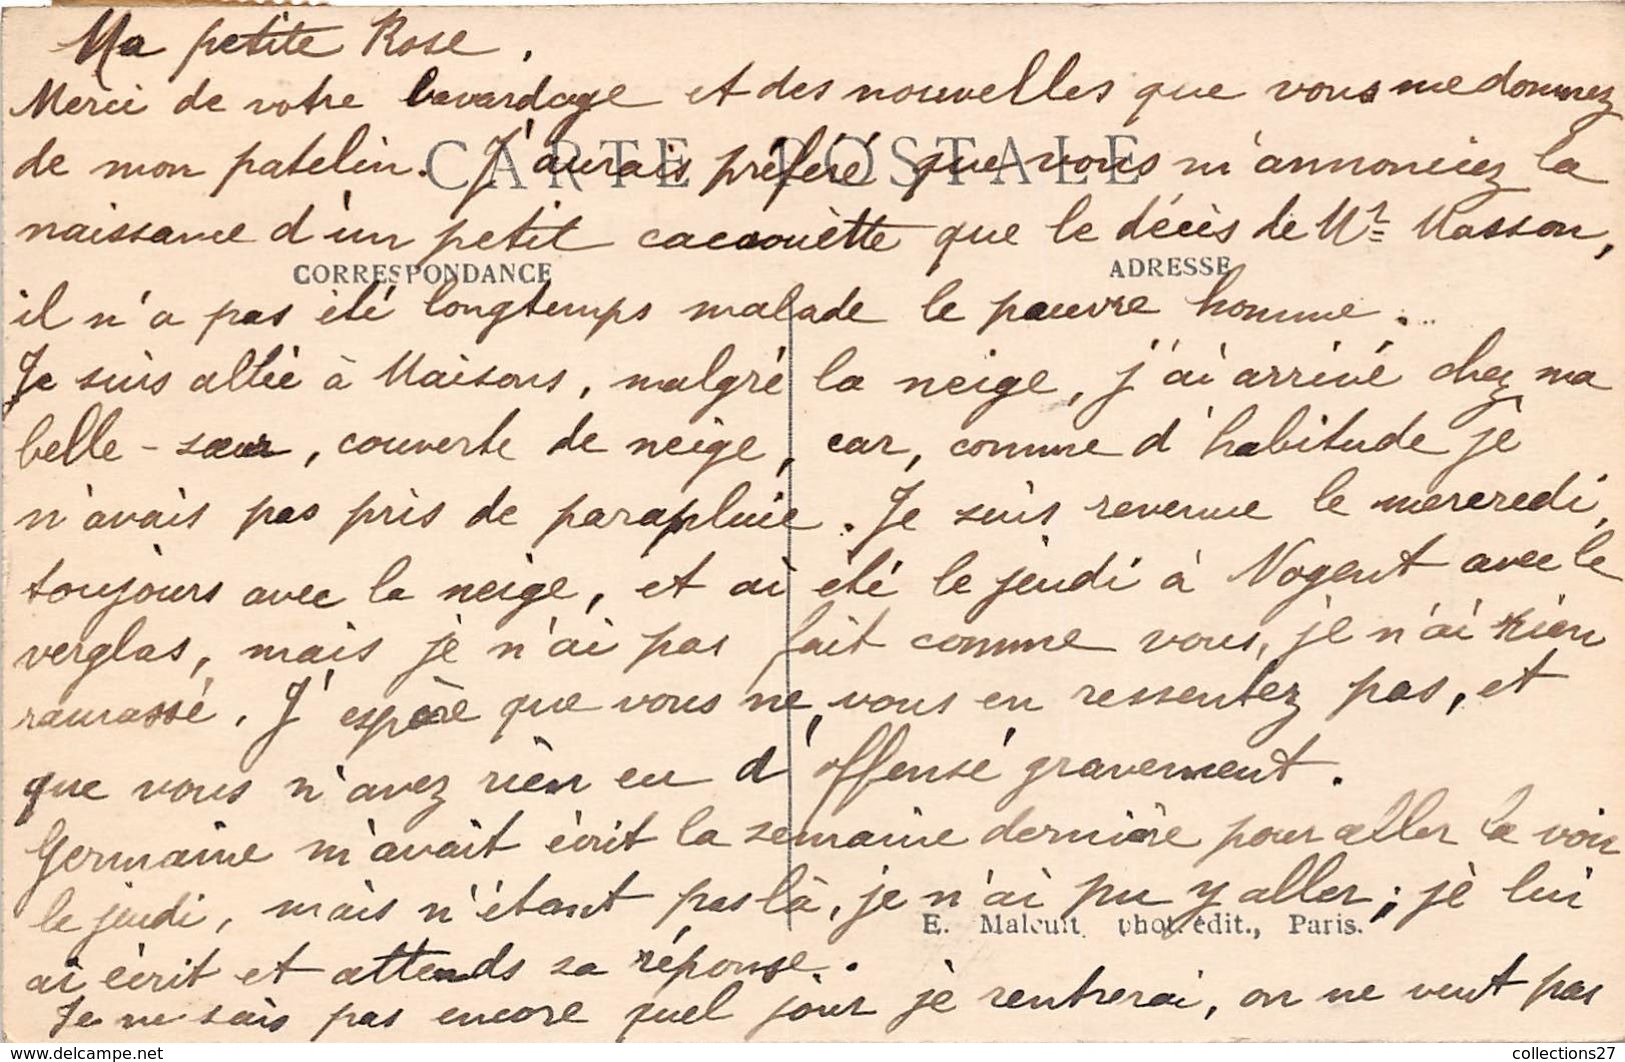 Ma petite Rose,
Merci de votre bavardage et des nouvelles que vous me donnez
de mon patelin. J'aurais préféré que vous m'annonciez la
CARTE POSTALE
naissance d'un petit cacaouètte que le décès de Mr Masson,
CORRESPONDANCE
ADRESSE
il n'a pas été longtemps malade le pauvre homme.
Je suis allée à Maisons, malgré la neige, j'ai arrivé chez ma
belle-sœur, couverte de neige, car, comme d'habitude je
n'avais pas pris de parapluie. Je suis revenue le mercredi,
toujours avec la neige, et ai été le jeudi à Nogent avec le
verglas, mais je n'ai pas fait comme vous, je n'ai rien
ramassé. J'espère que vous ne vous en ressentez pas, et
que vous n'avez rien eu d'offensé gravement.
Germaine m'avait écrit la semaine dernière pour aller la voir
le jeudi, mais n'étant pas là, je n'ai pu y aller; je lui
E. Malcuit phot. édit., Paris.
ai écrit et attends sa réponse.
Je ne sais pas encore quel jour je rentrerai, on ne veut pas
www.delcampe.net
collections27